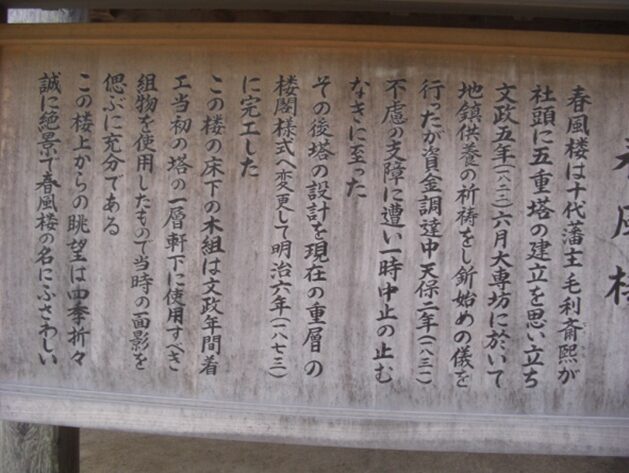 春風楼
春風楼は十代藩主毛利斎熙が
社頭に五重塔の建立を思い立ち
文政五年(一八二二)六月大専坊に於いて
地鎮供養の祈祷をし釿始めの儀を
行ったが資金調達中天保二年(一八三一)
不慮の支障に遭い一時中止の止む
なきに至った
その後塔の設計を現在の重層の
楼閣様式へ変更して明治六年(一八七三)
に完工した
この楼の床下の木組は文政年間着
工当初の塔の一層軒下に使用すべき
組物を使用したもので当時の面影を
偲ぶに充分である
この楼上からの眺望は四季折々
誠に絶景で春風楼の名にふさわしい